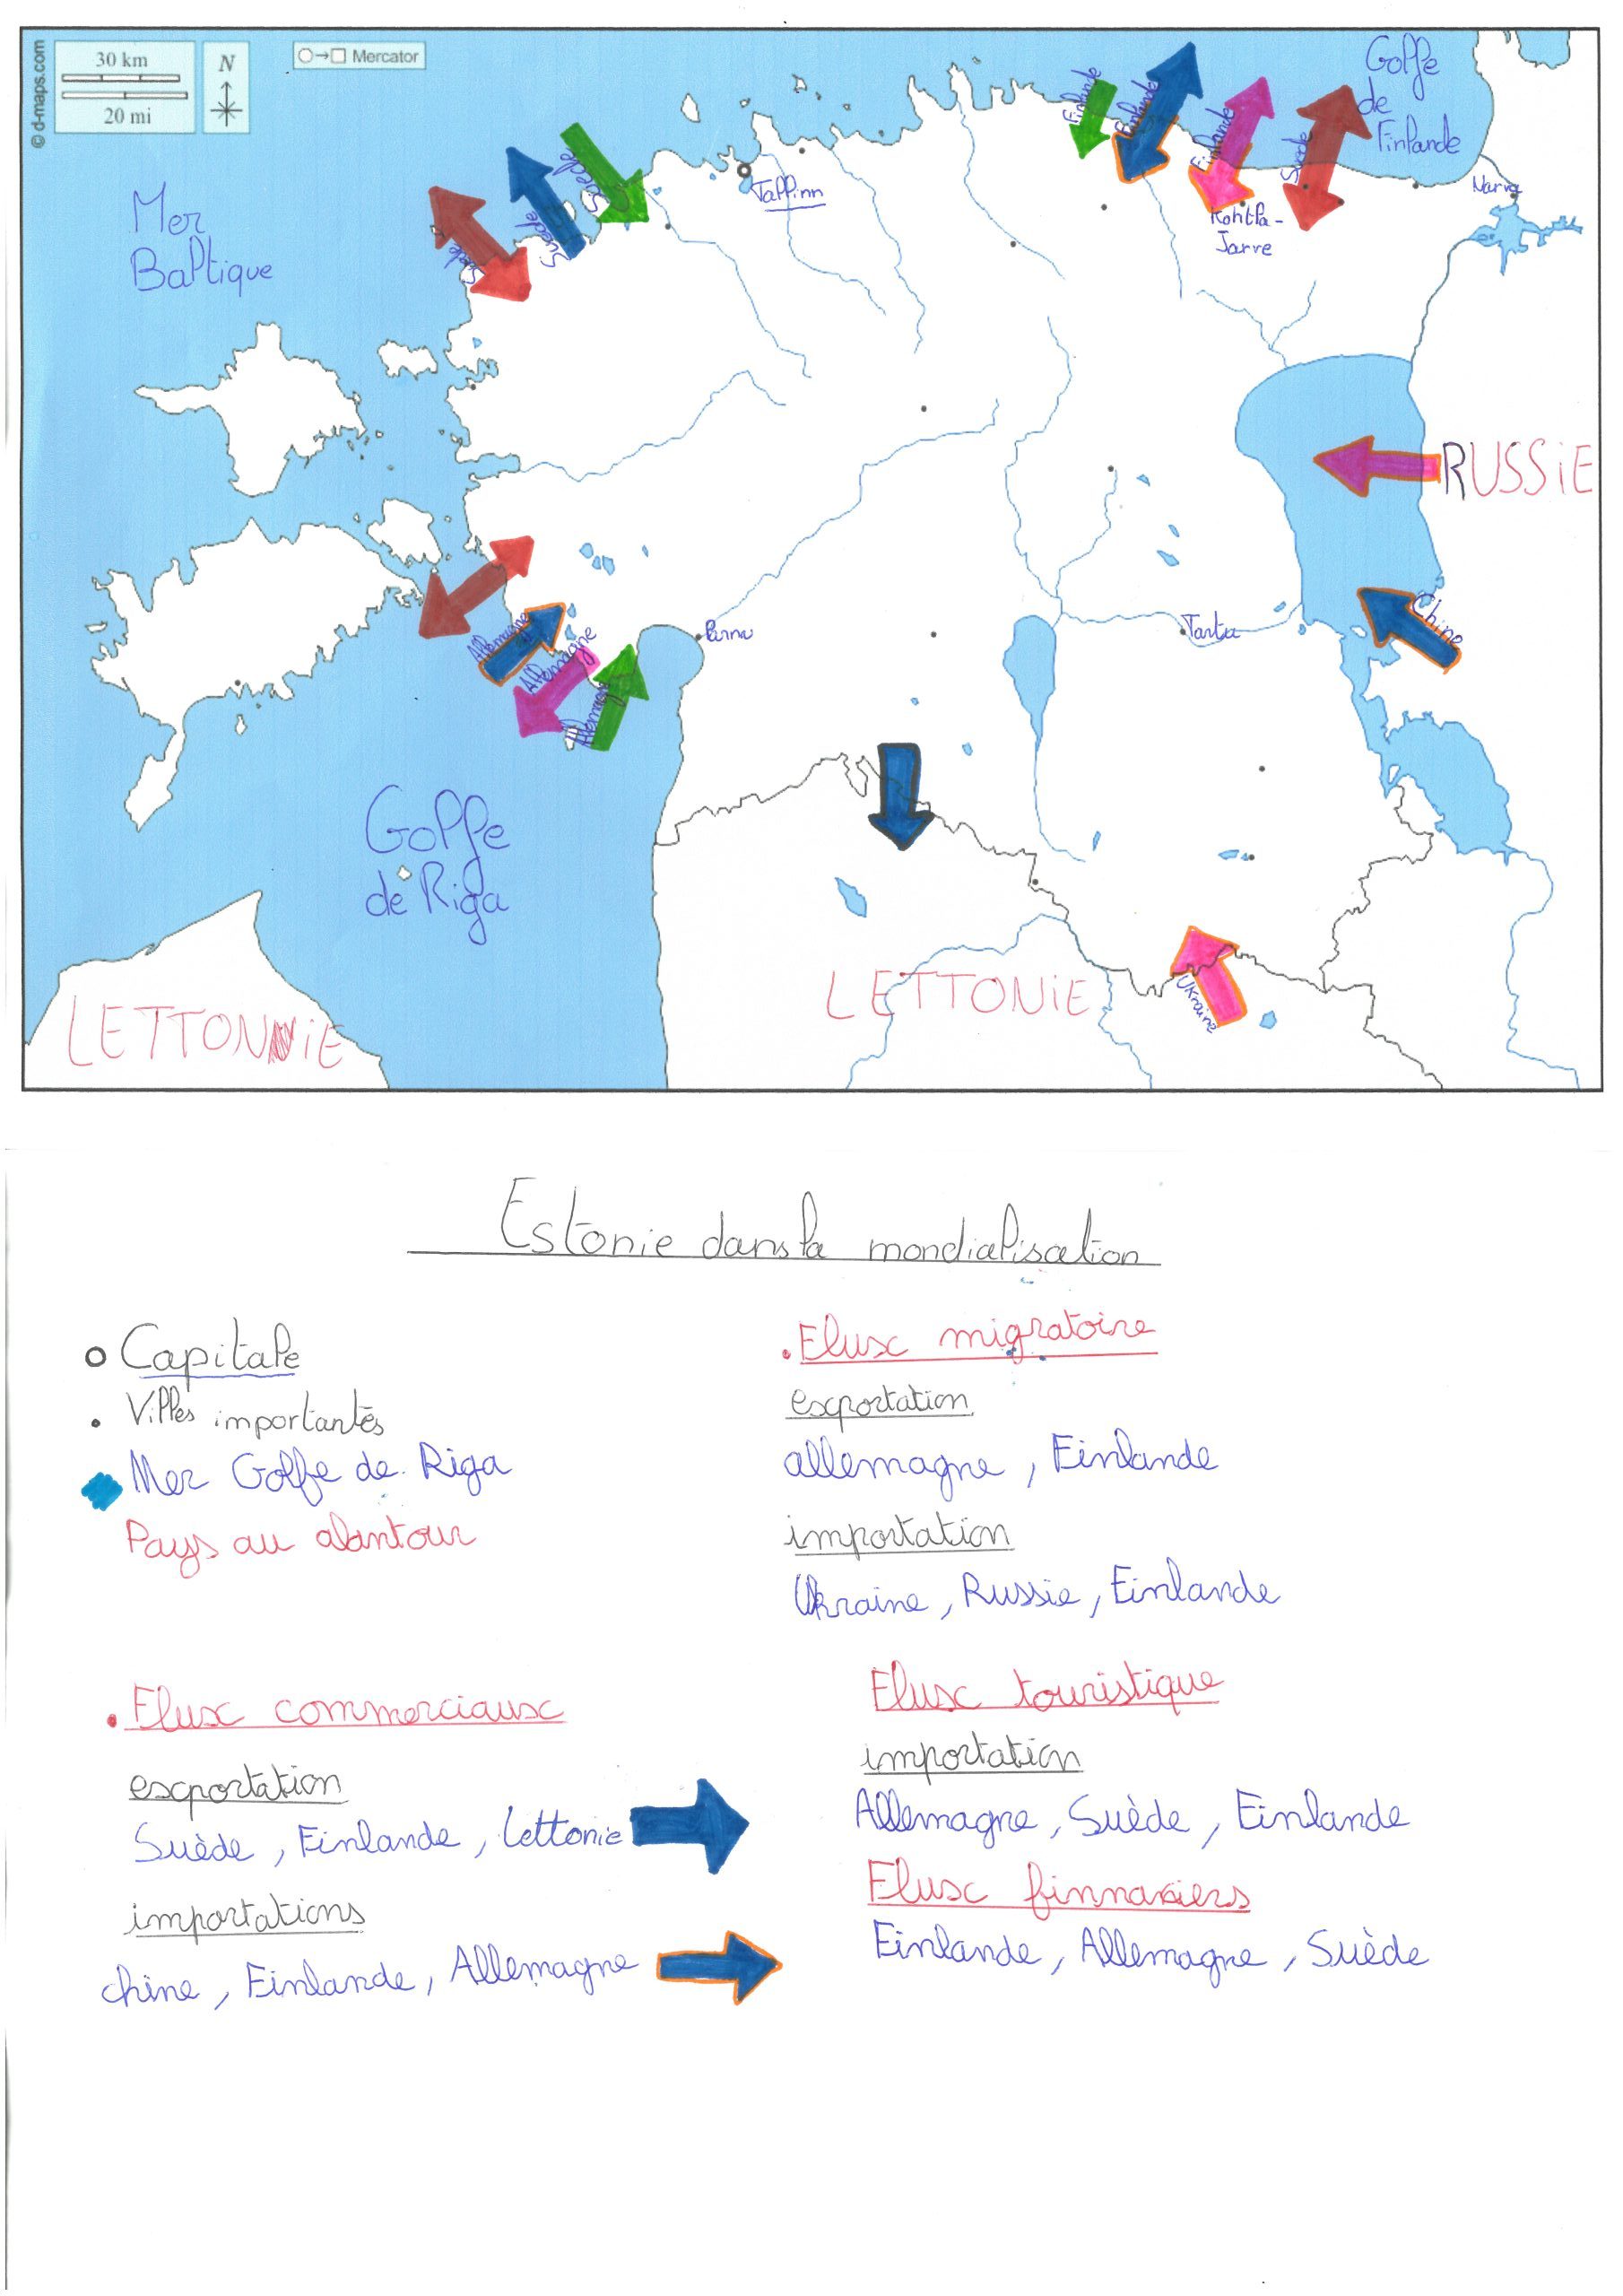 © d-maps.com
30 km
20 mi
N
Mercator
Mer
Baltique
Suède
Suède
Suède
Tallinn
Finlande
Finlande
Finlande
Suède
Golfe
de
Finlande
Narva
Kohtla-
Jarve
RUSSiE
Chine
Tartu
Parnu
Allemagne
Allemagne
Allemagne
Golfe
de Riga
LETTONiE
LETTONiE
Ukraine
Estonie dans la mondialisation
Capitale
Villes importantes
Mer Golfe de Riga
Pays au alantour
Flux migratoire
exportation
allemagne, Finlande
importation
Ukraine, Russie, Finlande
Flux commerciaux
exportation
Suède, Finlande, Lettonie
importations
chine, Finlande, Allemagne
Flux touristique
importation
Allemagne, Suède, Finlande
Flux finnanciers
Finlande, Allemagne, Suède